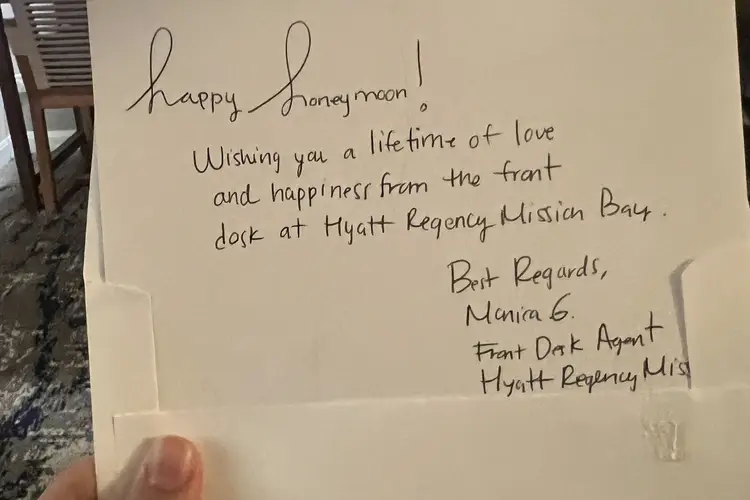 happy honeymoon!
Wishing you a lifetime of love
and happiness from the front
desk at Hyatt Regency Mission Bay.
Best Regards,
Monica G.
Front Desk Agent
Hyatt Regency Miss